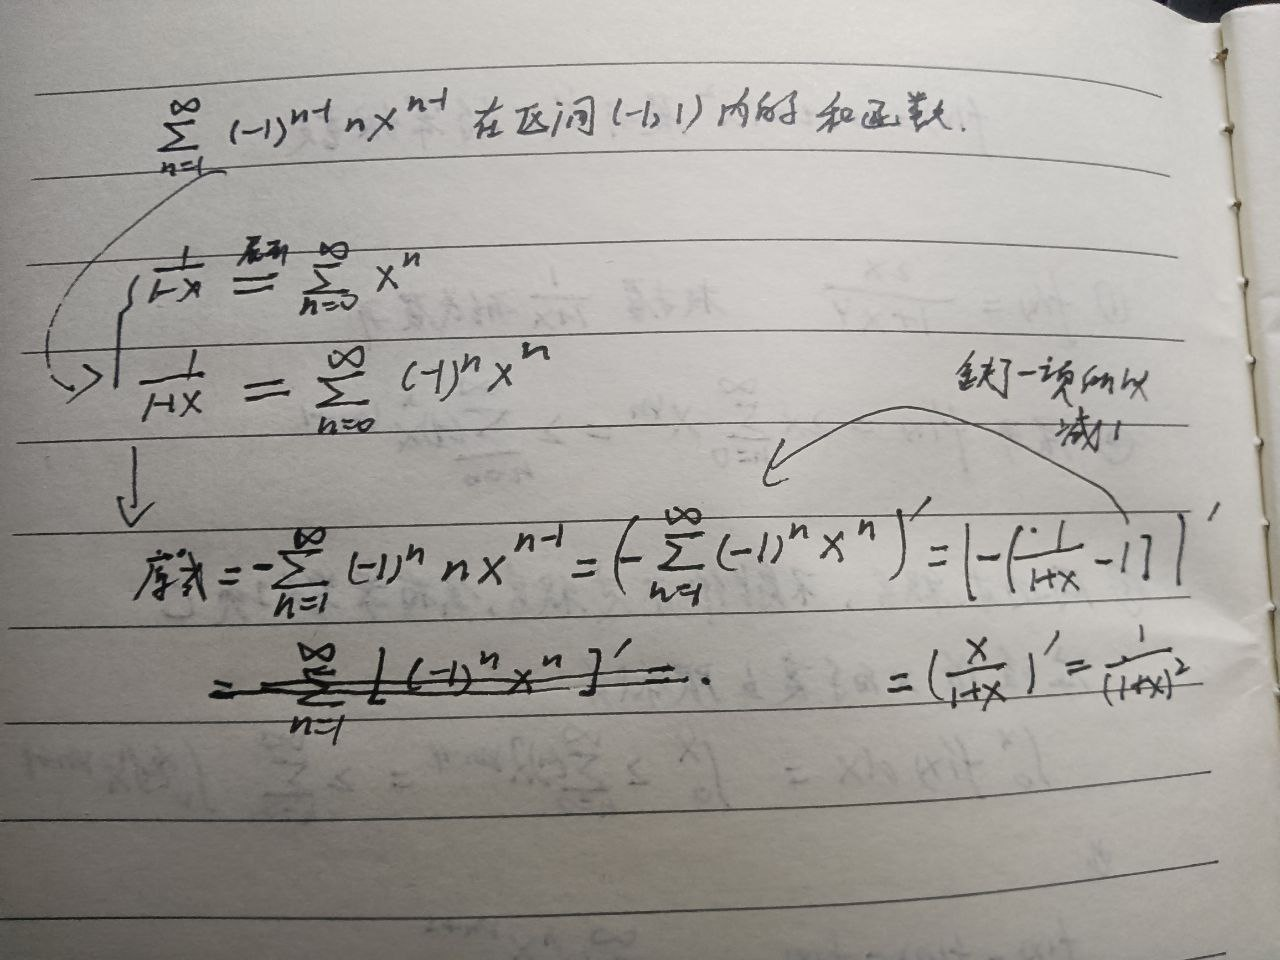 ∑_{n=1}^{∞} (-1)^{n-1} n x^{n-1} 在区间(-1,1)内的和函数.
1/(1-x) 展开= ∑_{n=0}^{∞} x^n
1/(1+x) = ∑_{n=0}^{∞} (-1)^n x^n
缺了一项所以
减1
原式 = -∑_{n=1}^{∞} (-1)^n n x^{n-1} = (-∑_{n=1}^{∞} (-1)^n x^n)' = [-(1/(1+x) -1)]'
= ∑_{n=1}^{∞} [(-1)^n x^n]' = . = (x/(1+x))' = 1/(1+x)^2